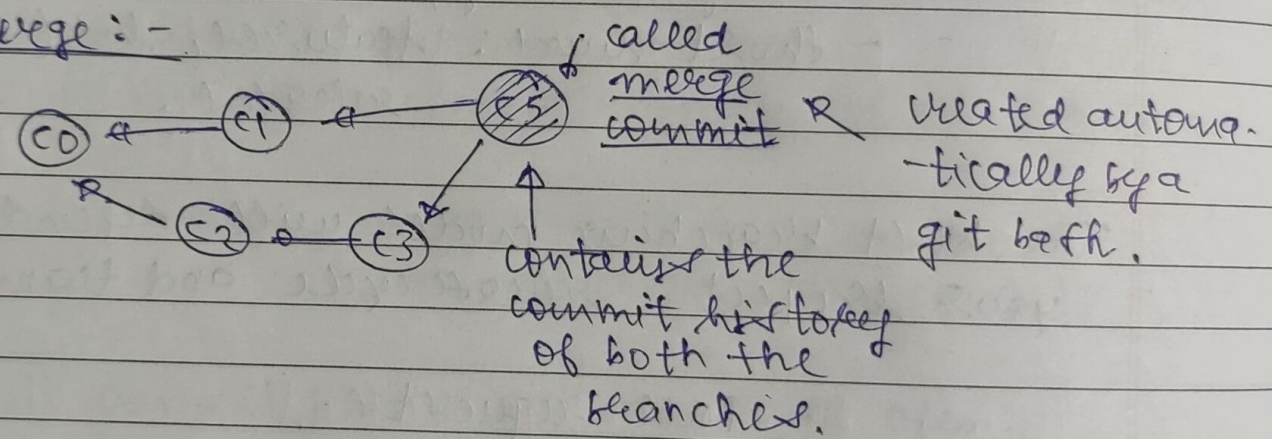 erge :-
called
merge
commit
created automa-
-tically by a
git bash.
C0
C1
C5
C2
C3
contains the
commit history
of both the
branches.